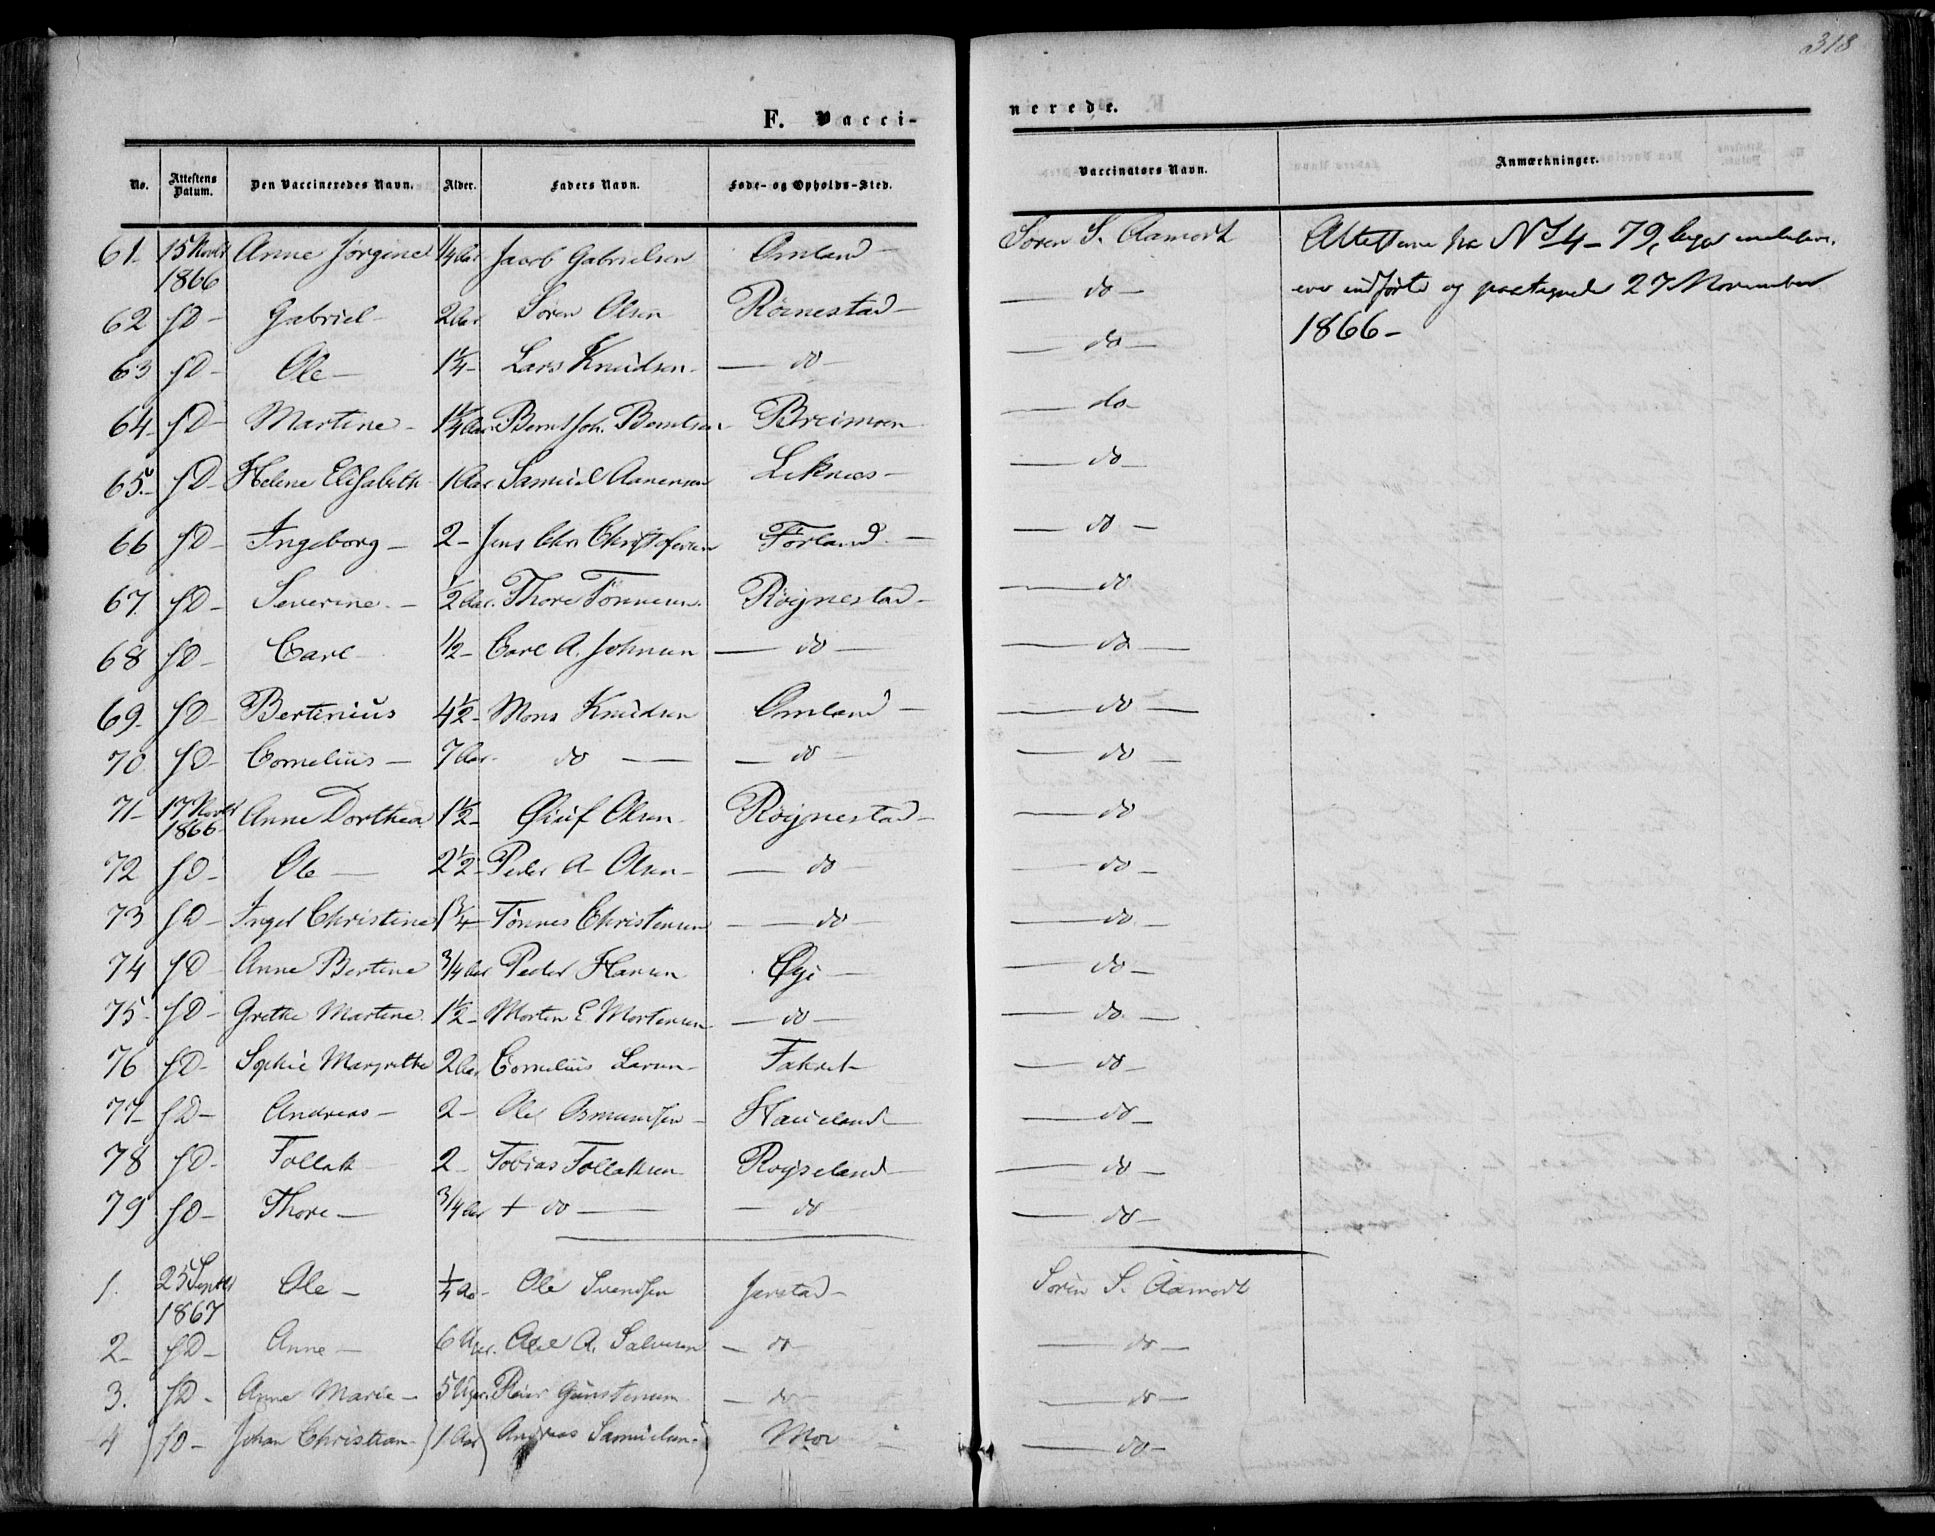 318
F. Vacci-
nerede.
No. Attestens Datum. Den Vaccineredes Navn. Alder. Faders Navn. Føde- og Opholds-Sted. Vaccinators Navn. Anmærkninger.
61. 15 Novbr 1866 Anne Jørgine 1/4 Aar Jacob Gabrielsen Omland Søren S. Aamodt
62 fD Gabriel 2 Aar Søren Olsen Röinestad do
63 fD Ole 1 1/4 Lars Knudsen do do
64 fD Martine 1 1/4 Aar Bernt Joh. Berntsen Breimoen do
65. fD Helene Elisabeth 1 Aar Samuel Aanensen Leknes do
66 fD Ingeborg 2 Jens Chr Christofersen Førland do
67. fD Severine 1/2 Aar. Thore Tønnesen Röynestad do
68 fD Carl 1/2 Carl A. Johnsen do do
69. fD Bertinius 4 1/2 Mons Knudsen Omland do
70. fD Cornelius 7 Aar. do do do
71 17 Novbr 1866 Anne Dorthea 1 1/2 Olsen Röynestad do
72 fD Ole 2 1/2 Peder A Olsen do do
73 fD Inger Christine 1 3/4 Tønnes Christensen do do
74 fD Anne Bertine 3/4 Aar Peder Hansen Øye do
75. fD Grethe Martine 1 1/2 Morten E Mortensen do do
76 fD Sophie Margrethe 2 Aar Cornelius Larsen do
77 fD Andreas 2 Ole Osmundsen Haueland do
78 fD Tollak 2 Tobias Tollaksen Röyseland do
79 fD Thore 3/4 Aar + do do do
1. 25 Septbr 1867 Ole 1/4 Aar Ole Svendsen Jerstad Søren S. Aamodt
2 fD Anne 6 Uger. A. Salvesen do do
3. fD Anne Marie 5 Uger. Reier Gunstensen do do
4 fD Johan Christian 1 Aar Andreas Samuelsen Moi do
Attesterne fra No 54-79,
indførte og 27 November
1866